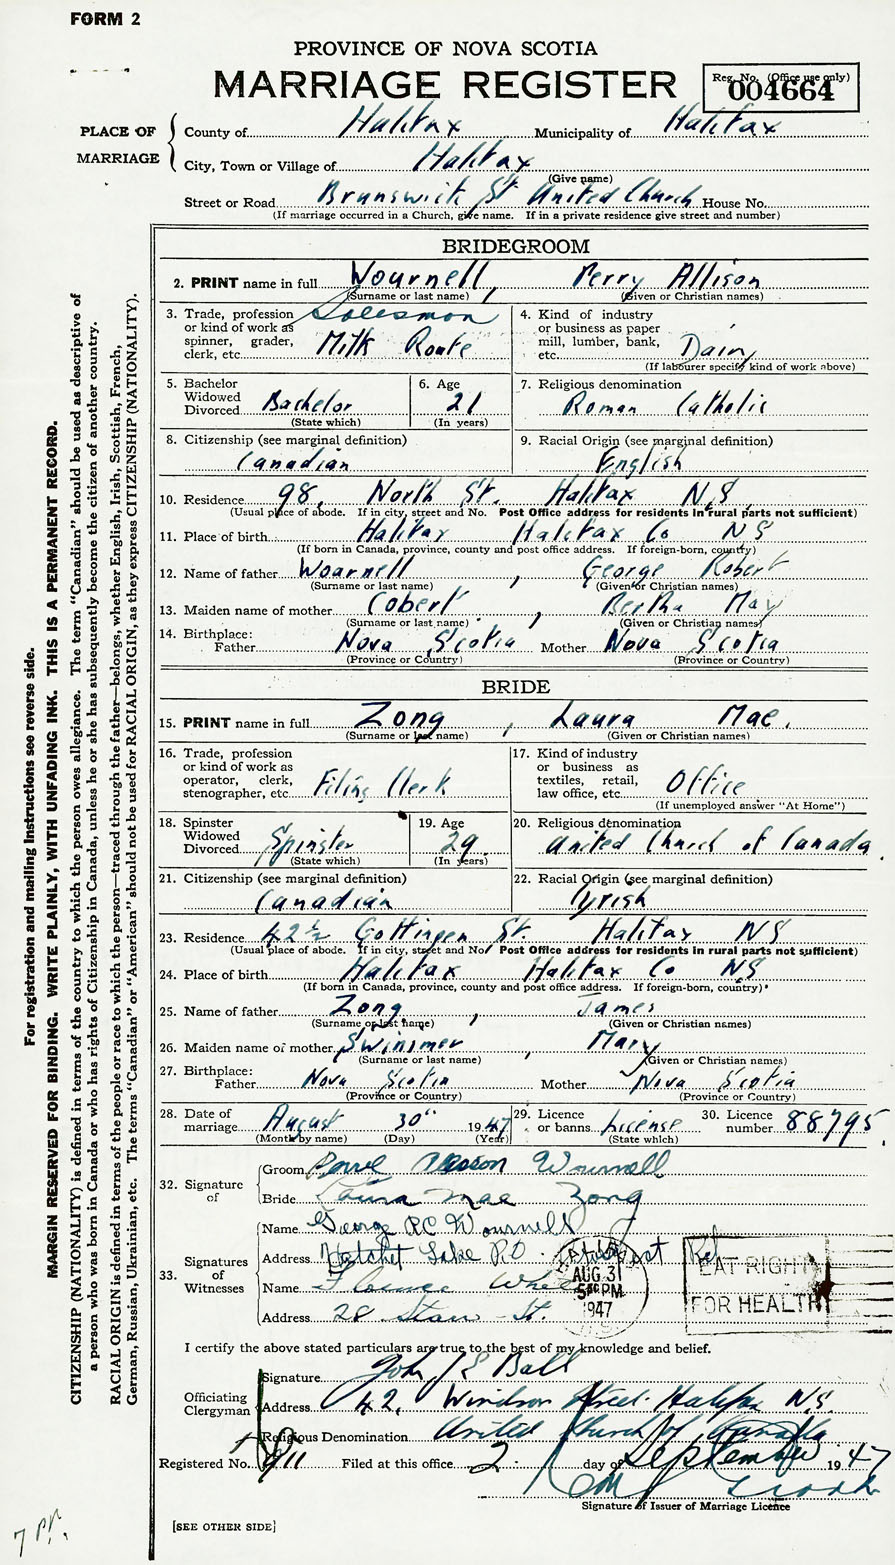 FORM 2
PROVINCE OF NOVA SCOTIA
MARRIAGE REGISTER
Reg. No. (Office use only)
004664
PLACE OF MARRIAGE
County of Halifax Municipality of Halifax
City, Town or Village of Halifax
(Give name)
Street or Road Brunswick St United Church House No.
(If marriage occurred in a Church, give name. If in a private residence give street and number)
BRIDEGROOM
2. PRINT name in full Wournell, Perry Allison
(Surname or last name) (Given or Christian names)
3. Trade, profession or kind of work as spinner, grader, clerk, etc. Salesman Milk Route
4. Kind of industry or business as paper mill, lumber, bank, etc. Dairy
(If labourer specify kind of work above)
5. Bachelor Widowed Divorced Bachelor
(State which)
6. Age 21
(In years)
7. Religious denomination
Roman Catholic
8. Citizenship (see marginal definition)
Canadian
9. Racial Origin (see marginal definition)
English
10. Residence 98, North St. Halifax N.S
(Usual place of abode. If in city, street and No. Post Office address for residents in rural parts not sufficient)
11. Place of birth Halifax Halifax Co NS
(If born in Canada, province, county and post office address. If foreign-born, country)
12. Name of father Woarnell, George Robert
(Surname or last name) (Given or Christian names)
13. Maiden name of mother Cobert, Bertha May
(Surname or last name) (Given or Christian names)
14. Birthplace:
Father Nova Scotia Mother Nova Scotia
(Province or Country) (Province or Country)
BRIDE
15. PRINT name in full Zong, Laura Mae.
(Surname or last name) (Given or Christian names)
16. Trade, profession or kind of work as operator, clerk, stenographer, etc. Filing Clerk
17. Kind of industry or business as textiles, retail, law office, etc. Office
(If unemployed answer "At Home")
18. Spinster Widowed Divorced Spinster
(State which)
19. Age 29
(In years)
20. Religious denomination
United Church of Canada.
21. Citizenship (see marginal definition)
Canadian
22. Racial Origin (see marginal definition)
Irish
23. Residence 42½ Gottingen St. Halifax NS
(Usual place of abode. If in city, street and No. Post Office address for residents in rural parts not sufficient)
24. Place of birth Halifax Halifax Co NS
(If born in Canada, province, county and post office address. If foreign-born, country)
25. Name of father Zong, James
(Surname or last name) (Given or Christian names)
26. Maiden name of mother Swinimer, Mary
(Surname or last name) (Given or Christian names)
27. Birthplace:
Father Nova Scotia Mother Nova Scotia
(Province or Country) (Province or Country)
28. Date of marriage August 30" 1947
(Month by name) (Day) (Year)
29. Licence or banns License
(State which)
30. Licence number 88795.
32. Signature of
Groom Wournell
Bride Laura Mae Zong
33. Signatures of Witnesses
Name George R.C. Wournell
Address Hatchet Lake P.O.
Name Florence
Address 28 St.
AUG 31
5 PM
1947
EAT RIGHT
FOR HEALTH
I certify the above stated particulars are true to the best of my knowledge and belief.
Officiating Clergyman
Signature John J E Ball
Address 42, Windsor Street. Halifax N.S.
Religious Denomination United Church of Canada
Registered No. 911 Filed at this office 2 day of September 1947
Signature of Issuer of Marriage Licence
[SEE OTHER SIDE]
For registration and mailing Instructions see reverse side.
MARGIN RESERVED FOR BINDING. WRITE PLAINLY, WITH UNFADING INK. THIS IS A PERMANENT RECORD.
CITIZENSHIP (NATIONALITY) is defined in terms of the country to which the person owes allegiance. The term "Canadian" should be used as descriptive of
a person who was born in Canada or who has rights of Citizenship in Canada, unless he or she has subsequently become the citizen of another country.
RACIAL ORIGIN is defined in terms of the people or race to which the person—traced through the father—belongs, whether English, Irish, Scottish, French,
German, Russian, Ukrainian, etc. The terms "Canadian" or "American" should not be used for RACIAL ORIGIN, as they express CITIZENSHIP (NATIONALITY).